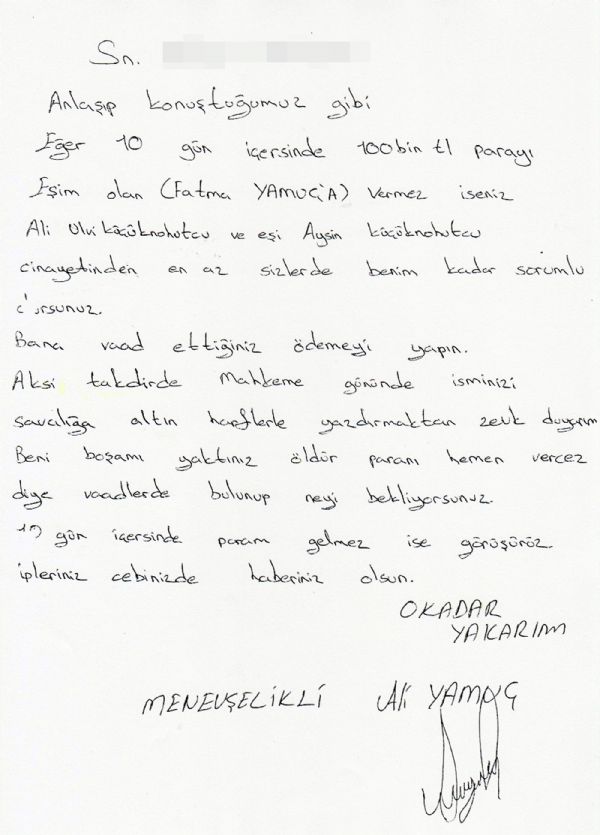 Sn.
Anlaşıp konuştuğumuz gibi
Eğer 10 gün içersinde 100bin tl parayı
Eşim olan (Fatma YAMUÇ'A) vermez iseniz
Ali Ulvi Küçüknohutcu ve eşi Aysin küçüknohutcu
cinayetinden en az sizlerde benim kadar sorumlu
olursunuz.
Bana vaad ettiğiniz ödemeyi yapın.
Aksi takdirde Mahkeme gününde isminizi
savcılığa altın harflerle yazdırmaktan zevk duyarım
Beni boşamı yaktınız öldür paranı hemen vercez
diye vaadlerde bulunup neyi bekliyorsunuz.
10 gün içersinde param gelmez ise görüşürüz.
ipleriniz cebinizde haberiniz olsun.
OKADAR
YAKARIM
MENEVŞELİKLİ Ali YAMUÇ